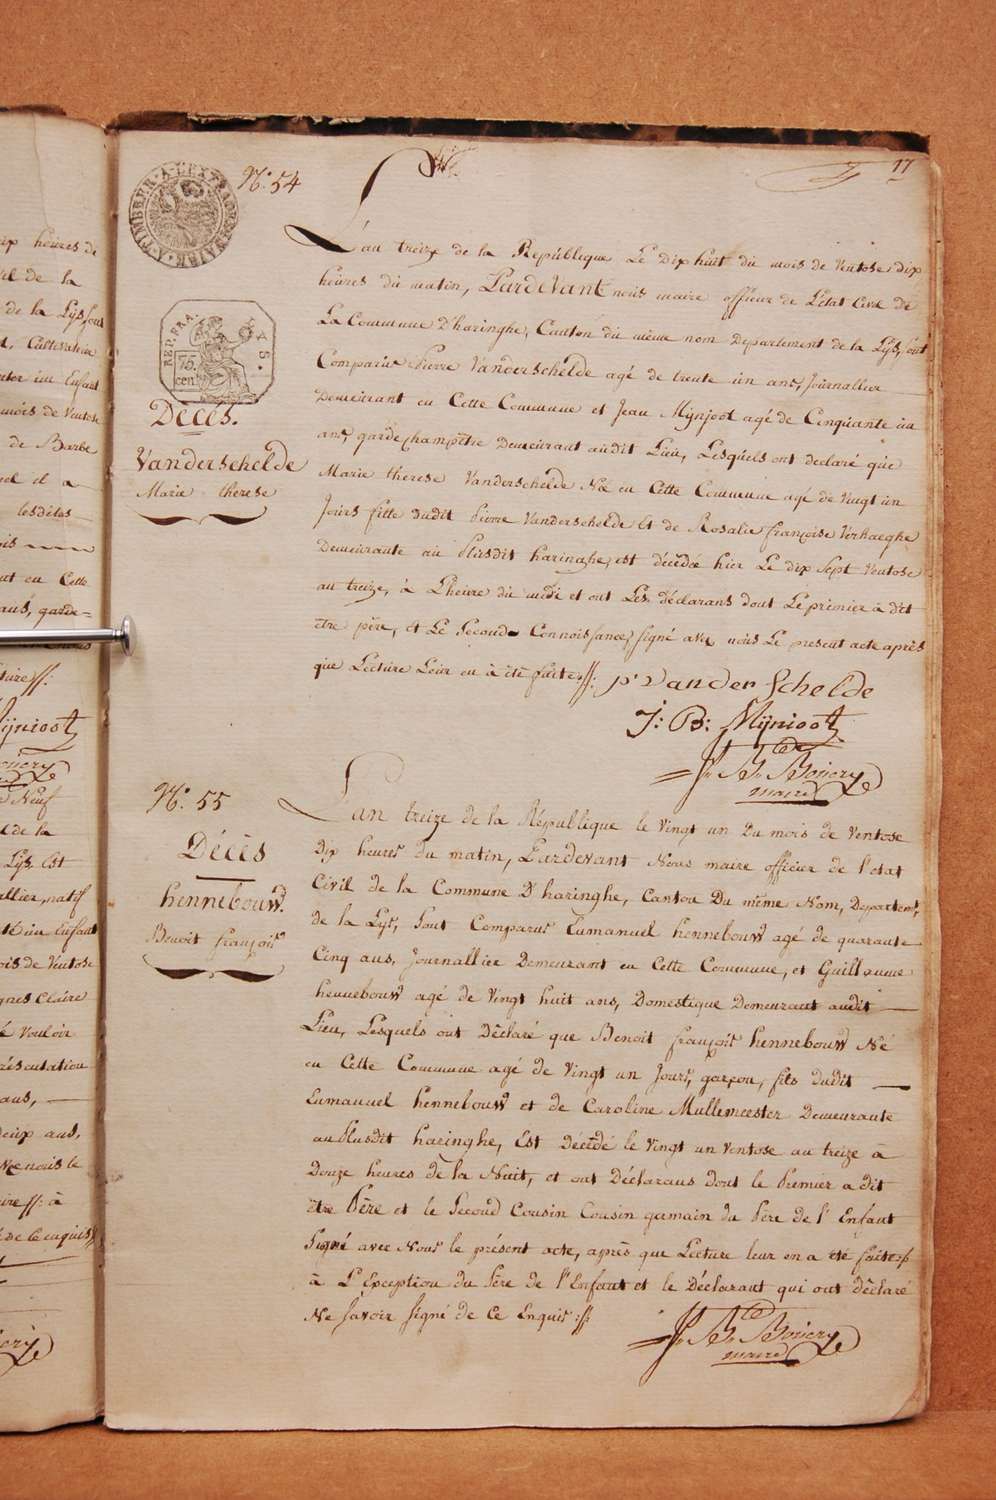 17
N.° 54
L'an treize de la République le Dix huit du mois de Ventose, dix
heures du matin, Pardevant nous maire officier de L'état Civil de
La Commune D'haringhe, Canton du même nom Departement de la Lijs, sont
Comparus Pierre Vanderschelde agé de trente un ans, Journallier
Demeurant en Cette Commune et Jean Mijnjoot agé de Cinquante un
ans, garde Champêtre Demeurant audit Lieu, Lesquels ont declaré que
Marie therese Vanderschelde Née en Cette Commune agé de Vingt un
Jours fille dudit Pierre Vanderschelde Et de Rosalie françoise Verhaeghe
Demeurante au Plusdit haringhe, est décédée hier Le dix Sept Ventose
an treize, à L'heure du midi et ont Les déclarans dont Le premier à dit
être père, et Le Second Connoissance, signé avec nous Le present acte après
que Lecture Leur en à été faite //:
p' Vander Schelde
J: B: Mijnioot
maire
TIMBRE A L'EXTRAORDINAIRE
REP. FRA.
75
cen
Décès.
Vanderschelde
Marie therese
N.° 55
Décès
hennebouw.
Benoit françois
Lan treize de la République le Vingt un Du mois de Ventose
Dix heures du matin, Pardevant Nous maire officier de l'etat
Civil de la Commune D'haringhe, Canton Du même Nom, Departemt,
de la Lijs, Sont Comparus Eumanuel hennebouw agé de quarante
Cinq ans, Journallier Demeurant en Cette Commune, et Guillaume
hennebouw agé de Vingt huit ans, Domestique Demeurant audit
Lieu, Lesquels ont Déclaré que Benoit françois hennebouw Né
en Cette Commune agé de Vingt un Jours, garçon, fils dudit
Eumanuel hennebouw et de Caroline Mullemeester Demeurante
au Plusdit haringhe, Est Décédé le Vingt un Ventose an treize à
Douze heures de la Nuit, et ont Déclarans dont le Premier a dit
être Père et le Second Cousin Cousin germain du Père de l'Enfant
Signé avec Nous le présent acte, après que Lecture leur en a été faite
à L'Exception du Père de l'Enfant et le Déclarant qui ont déclaré
Ne savoir signé de Ce Enquis ://:
maire